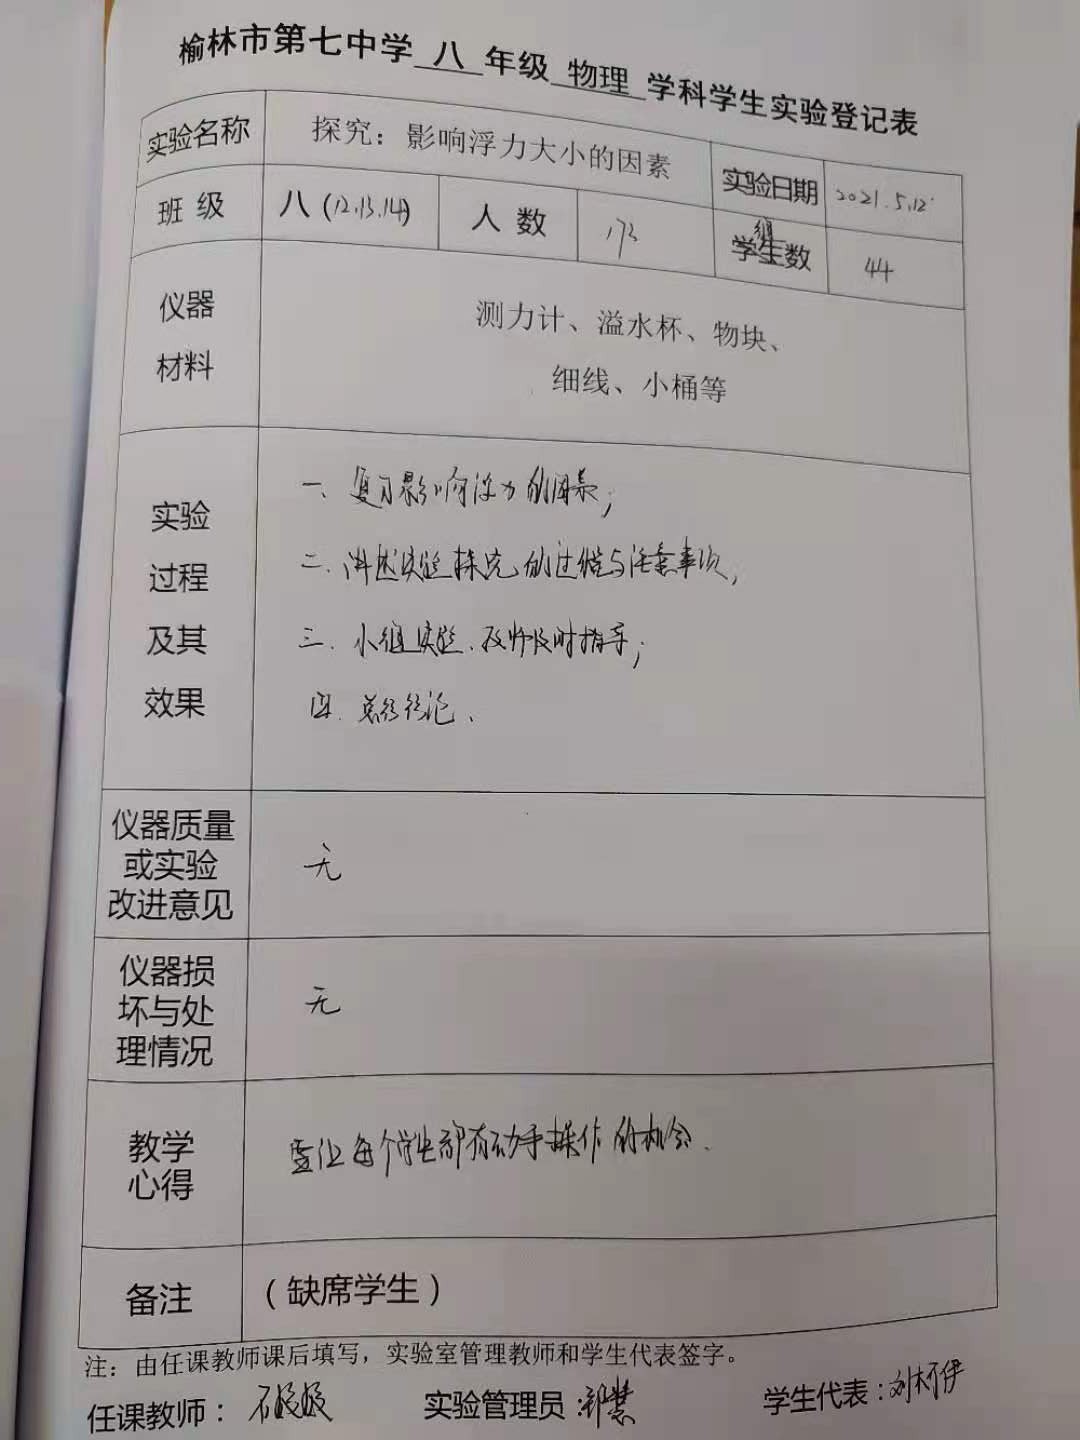 榆林市第七中学 八 年级 物理 学科学生实验登记表
实验名称 探究：影响浮力大小的因素 实验日期 2021.5.12
班 级 八（12.13.14） 人 数 173 组
学生数 44
仪器
材料
测力计、溢水杯、物块、
细线、小桶等
实验
过程
及其
效果
一、复习影响浮力的因素；
二、讲述实验探究的过程与注意事项，
三、小组实验、教师及时指导；
四、总结结论、
仪器质量
或实验
改进意见
无
仪器损
坏与处
理情况
无
教学
心得
要让每个学生都有动手操作的机会.
备注 （缺席学生）
注：由任课教师课后填写，实验室管理教师和学生代表签字。
任课教师： 石 实验管理员： 慧 学生代表：刘柯伊